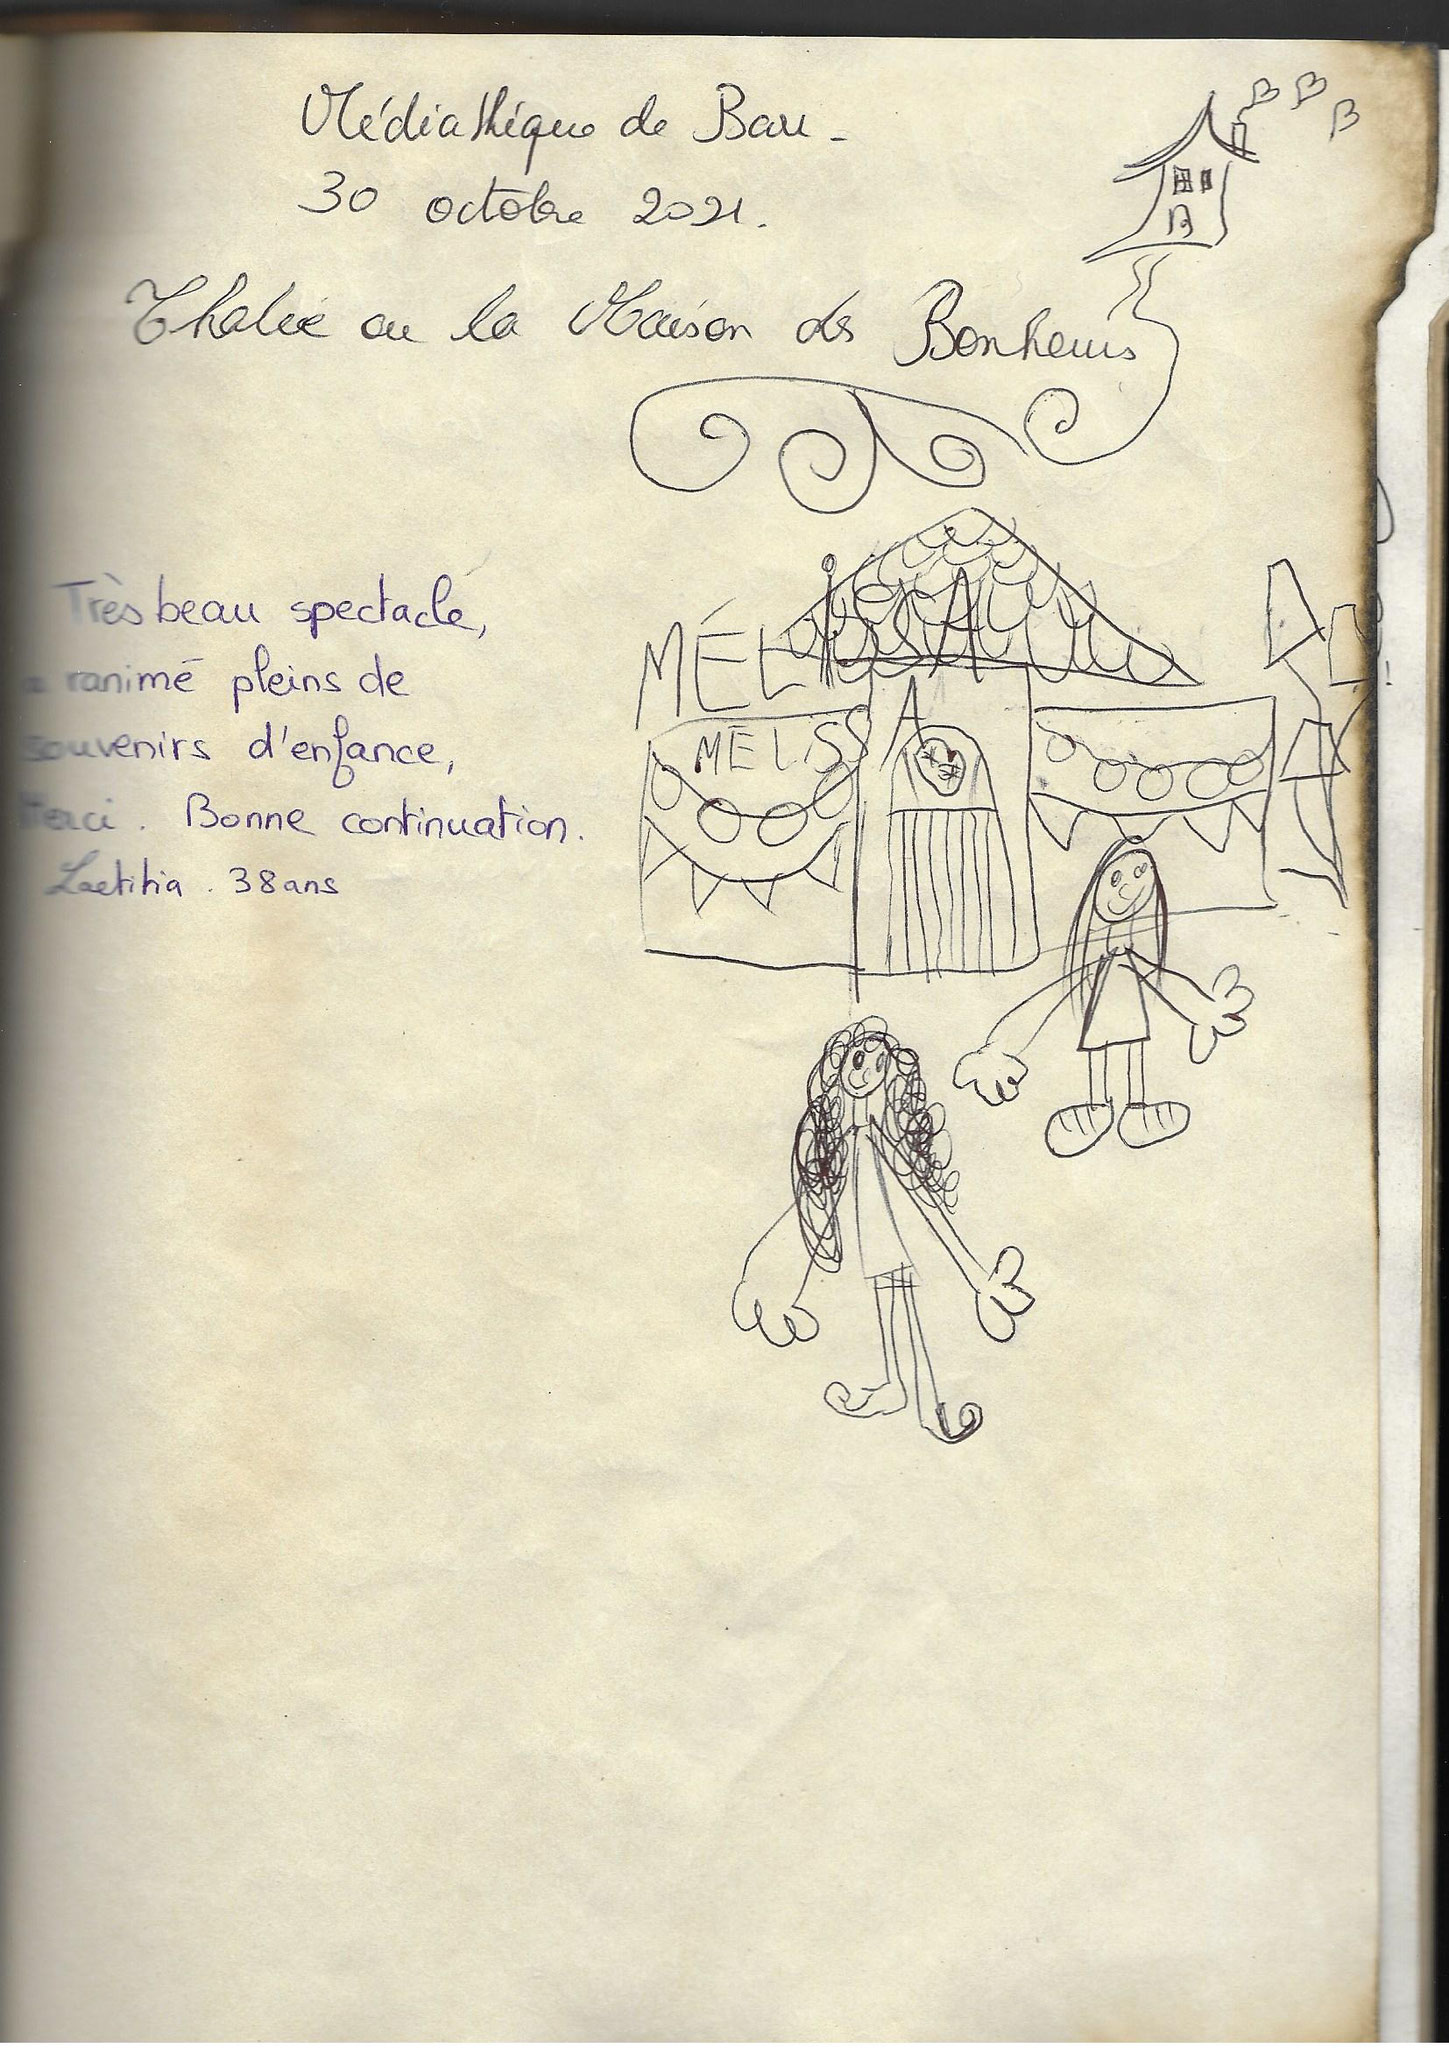 Médiathèque de Bau -
30 octobre 2021.
Thalie ou la Maison des Bonheurs
Très beau spectacle,
a ranimé pleins de
souvenirs d'enfance,
Merci. Bonne continuation.
Laetitia. 38 ans
MÉLISSA
MÉLISSA